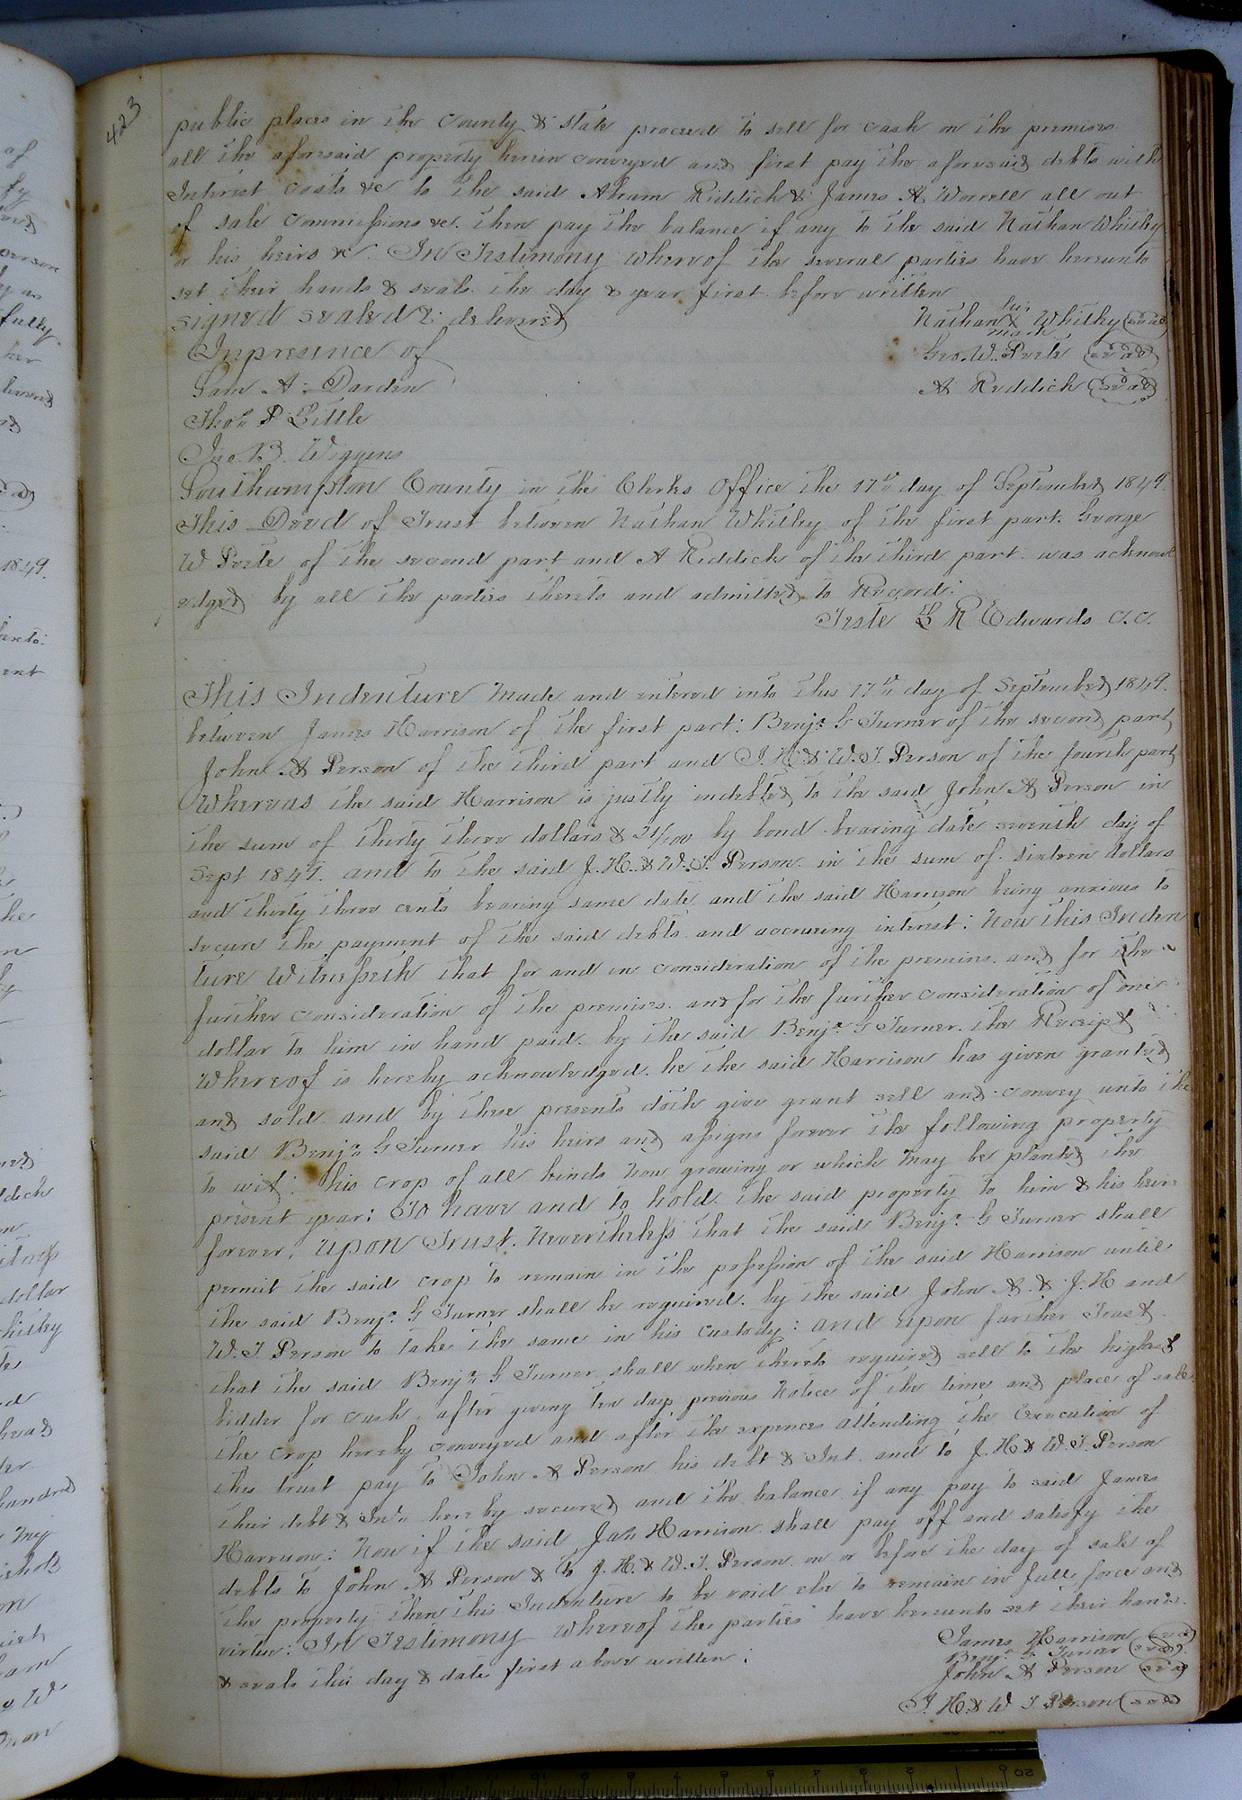 423
public places in the County & state proceed to sell for cash on the premises
all the aforesaid property herein conveyed and first pay the aforesaid debts with
Interest costs &c to the said Abram Riddick & James A Worrell all out
of sale commissions &c. then pay the balance if any to the said Nathan Whitley
or his heirs &c. In Testimony whereof the several parties have hereunto
set their hands & seals the day & year first before written
signed sealed & delivered
Nathan his X mark Whitley (seal)
In presence of
Geo. W. Peete (seal)
Sam A. Darden
A Riddick (seal)
Thos P Little
Jno. B. Wiggens
Southampton County in the Clerks Office the 17th day of September 1849.
This Deed of Trust between Nathan Whitley of the first part. George
W Peete of the second part and A Riddick of the third part was acknowl
edged by all the parties thereto and admitted to Record.
Teste L R Edwards C.C.
This Indenture made and entered into this 17th day of September 1849.
between James Harrison of the first part: Benja G Turner of the second part
John A Person of the third part and J. H. & W. T. Person of the fourth part
Whereas the said Harrison is justly indebted to the said John A Person in
the sum of thirty three dollars & 21/100 by bond bearing date seventh day of
Sept 1849. and to the said J. H. & W. T. Person in the sum of sixteen dollars
and thirty three cents bearing same date and the said Harrison being anxious to
secure the payment of the said debts and accruing interest: Now this Inden
ture Witnesseth that for and in consideration of the premises and for the
further consideration of the premises and for the further consideration of one
dollar to him in hand paid by the said Benja G Turner the Receipt
whereof is hereby acknowledged. he the said Harrison has given granted
and sold and by these presents doth give grant sell and convey unto the
said Benja G Turner his heirs and assigns forever the following property
to wit: his crop of all kinds now growing or which may be planted the
present year: To have and to hold the said property to him & his heirs
forever. Upon Trust. Nevertheless that the said Benja G Turner shall
permit the said crop to remain in the possession of the said Harrison until
the said Benja G Turner shall be required by the said John A. & J. H and
W. T. Person to take the same in his custody: and upon further Trust
that the said Benja G Turner shall when thereto required sell to the highest
bidder for cash after giving ten days previous notice of the time and place of sale
the crop hereby conveyed and after the expences attending the Execution of
this trust pay to John A Person his debt & Int. and to J. H & W. T. Person
their debt & Int. hereby secured and the balance if any pay to said James
Harrison: Now if the said Jas Harrison shall pay off and satisfy the
debts to John A Person & to J. H. & W. T. Person on or before the day of sale of
the property then this Indenture to be void else to remain in full force and
virtue: In Testimony whereof the parties have hereunto set their hands
& seals this day & date first above written:
James Harrison (seal)
Benja G Turner (seal)
John A Person (seal)
J. H. & W T Person (seal)